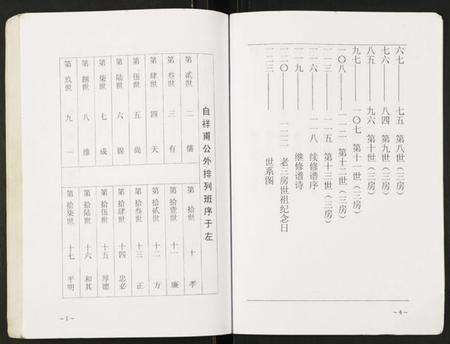 六七——七五 第八世(三房)
七六——八四 第九世(三房)
八五——九六 第十世(三房)
九七——一〇七 第十一世(三房)
一〇八——一一二 第十二世(三房)
一一三——一一五 第十三世(三房)
一一六——一一八 续修谱序
一一九 维修谱诗
一二〇——一二二 老三房世祖纪念日
一二三—— 世系图
自祥甫公外排列班序于左
第贰世 二 儒
第叁世 三 有
第肆世 四 天
第伍世 五 尚
第陆世 六
第柒世 七 成
第捌世 八 维
第玖世 九 一
第拾世 十 孝
第拾壹世 十一 廉
第拾贰世 十二 方
第拾叁世 十三 正
第拾肆世 十四 忠必
第拾伍世 十五 厚德
第拾陆世 十六 和其
第拾柒世 十七 平明
~1~